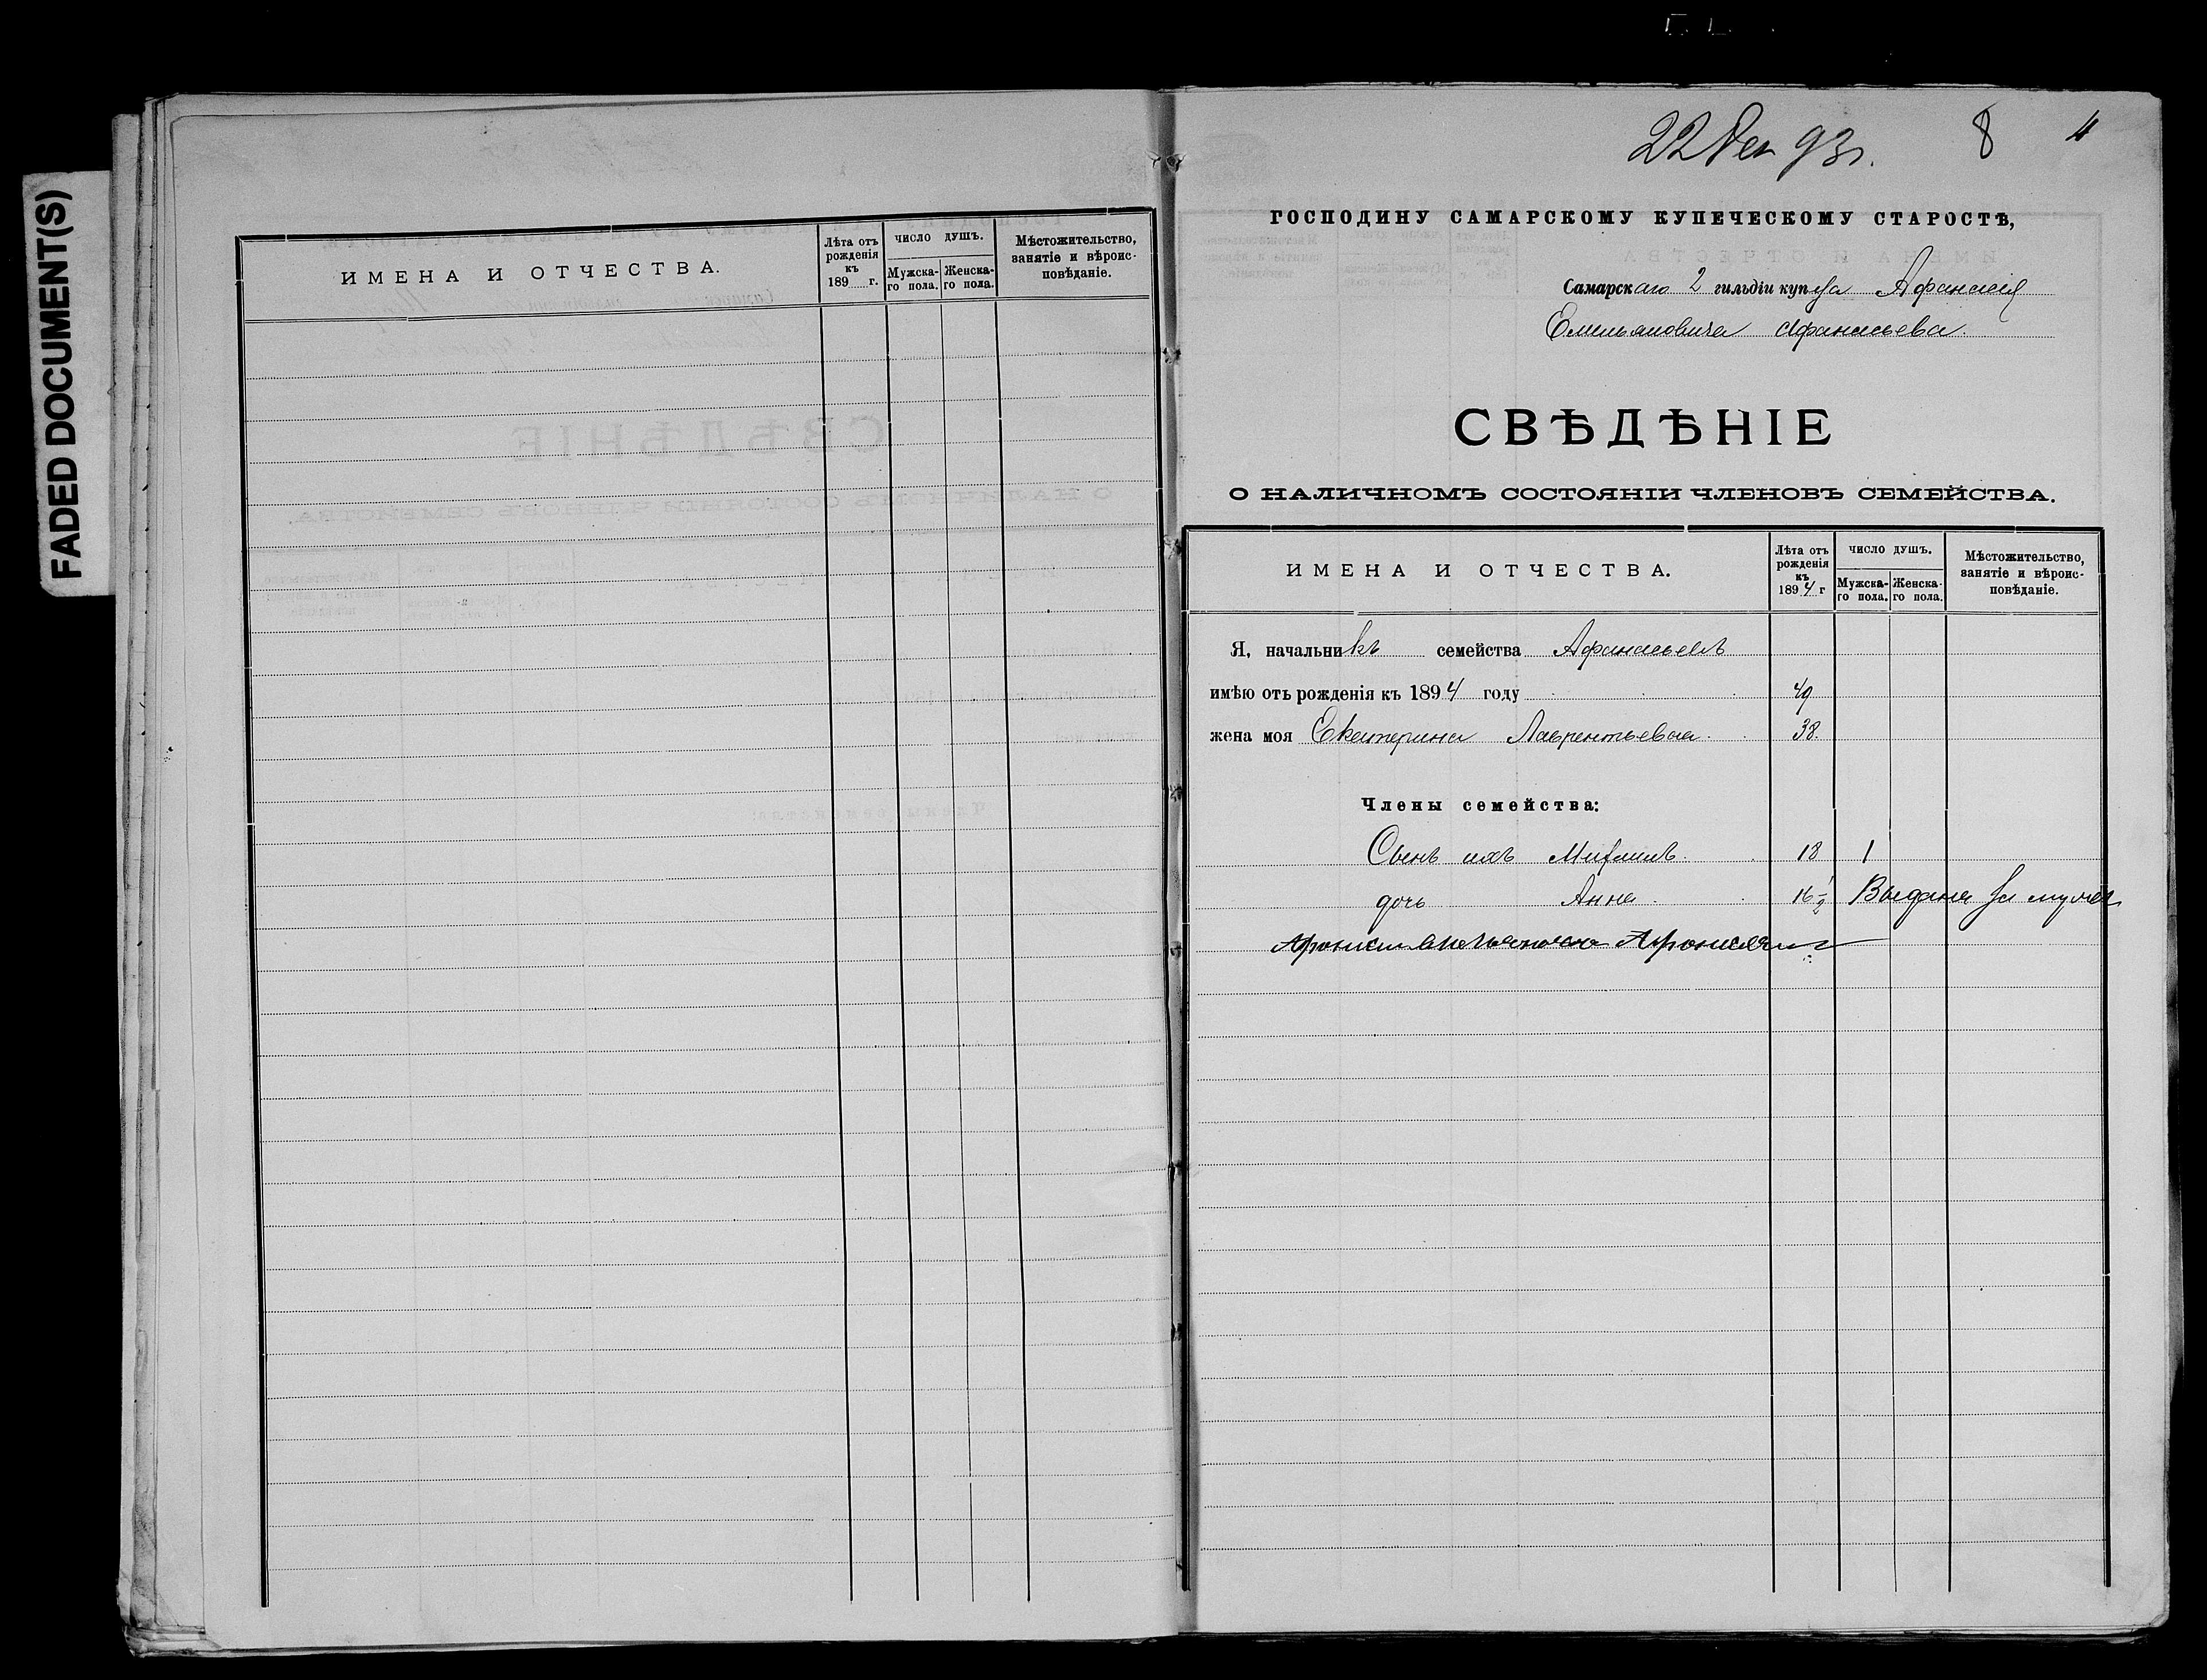 FADED DOCUMENT(S)
ИМЕНА И ОТЧЕСТВА.
Лѣта отъ рожденія къ 189 г.
ЧИСЛО ДУШЪ.
Мужска-го пола.
Женска-го пола.
Мѣстожительство, занятіе и вѣроис-повѣданіе.
22 Дек 93 г.
8
4
ГОСПОДИНУ САМАРСКОМУ КУПЕЧЕСКОМУ СТАРОСТѢ,
Самарскаго 2 гильдіи купца Афанасія
Емельяновича Афанасьева.
СВѢДѢНІЕ
О НАЛИЧНОМЪ СОСТОЯНІИ ЧЛЕНОВЪ СЕМЕЙСТВА.
ИМЕНА И ОТЧЕСТВА.
Лѣта отъ рожденія къ 1894 г
ЧИСЛО ДУШЪ.
Мужска-го пола.
Женска-го пола.
Мѣстожительство, занятіе и вѣроис-повѣданіе.
Я, начальникъ семейства Афанасьевъ
имѣю отъ рожденія къ 1894 году 49
жена моя Екатерина Лаврентьевна 38
Члены семейства:
Сынъ ихъ Михаилъ 18 1
дочь Анна 16 1/2 Выдана за мужъ